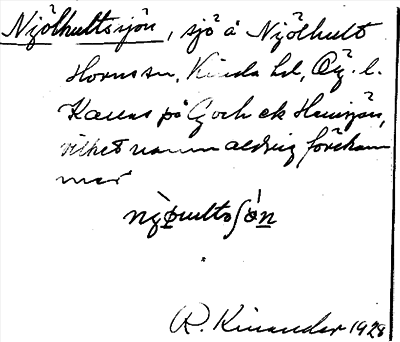 Njölhultssjön, sjö å Njölhult
Horns sn, Kinda hd, Ög. l.
Kallas på Geoh ek Hemsjön,
vilket namn aldrig förekom
mer
R. Kinander 1928